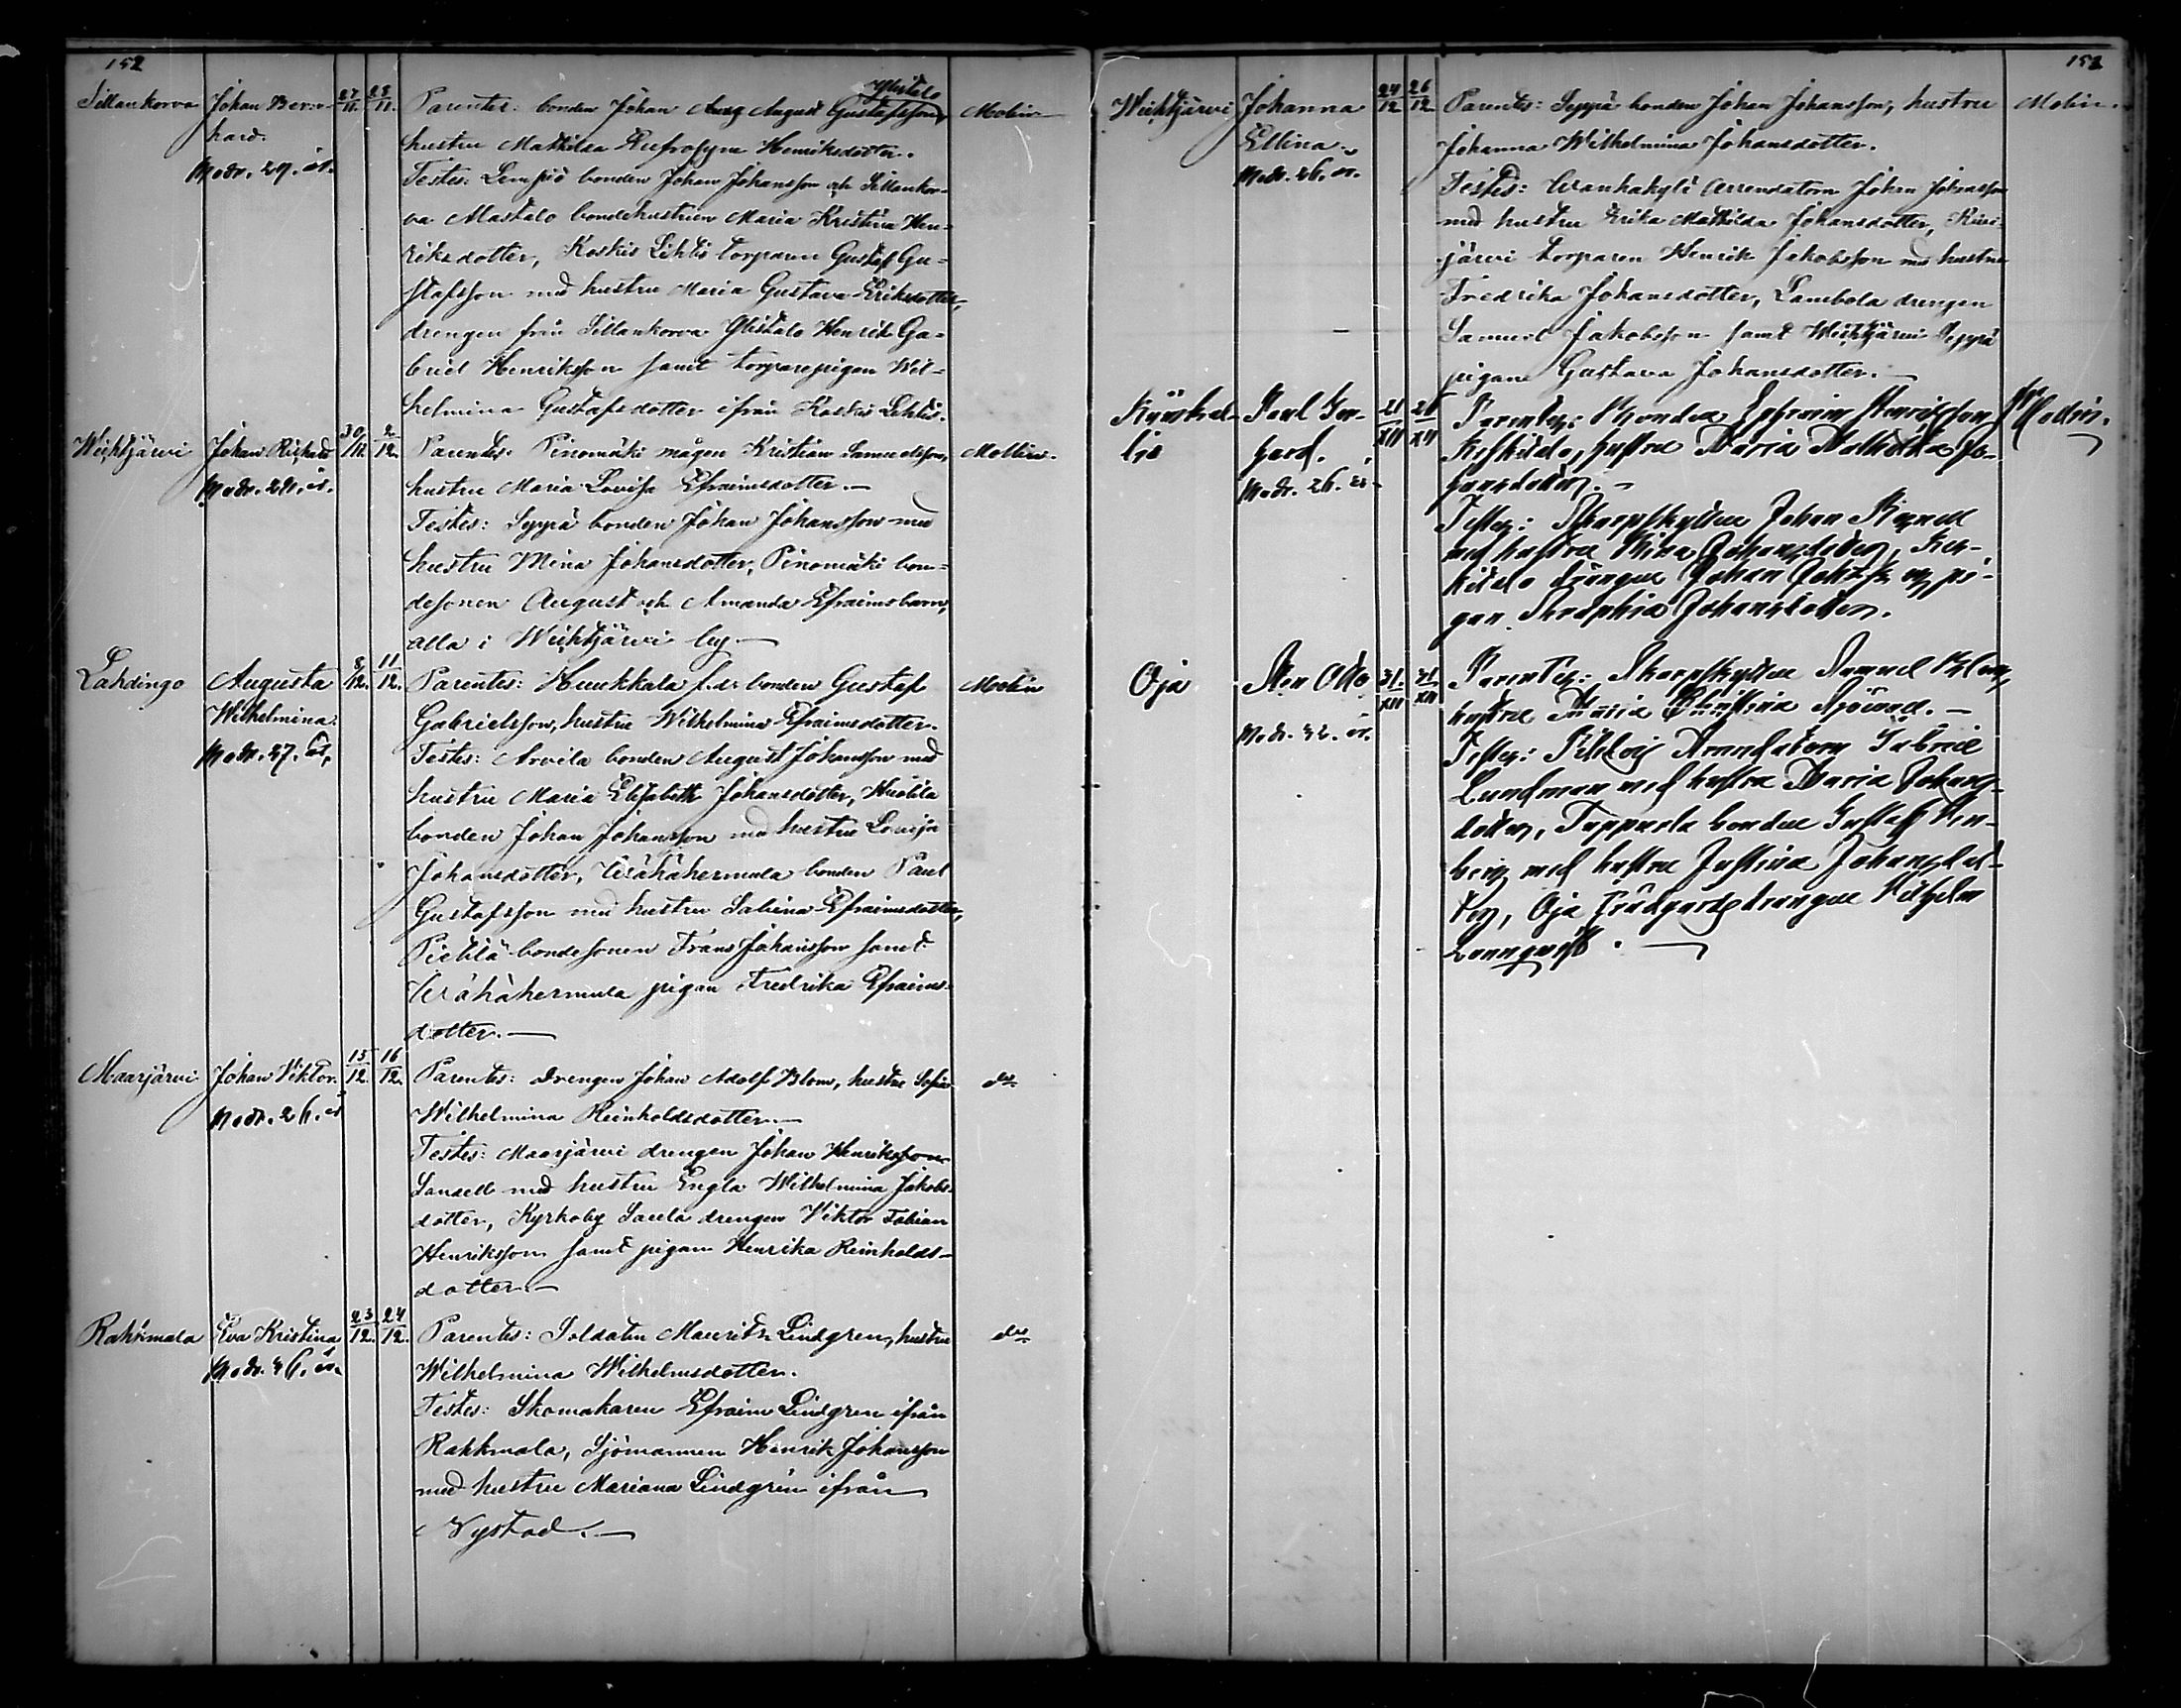 152
Sillankorva Johan Bern- 27/11. 28/11. Parentes: bonden Johan August Gustafsson Ylistalo Molin
hard. hustru Mathilda Eufrosyna Henriksdotter.
Modr. 29. år. Testes: Lempiö bonden Johan Johansson och Sillankor-
va Mastalo bondehustrun Maria Kristina Hen-
riksdotter, Koskis Lehtis torparen Gustaf Gu-
stafsson med hustru Maria Gustava Eriksdotter,
drengen från Sillankorva Ylistalo Henrik Ga-
briel Henriksson samt torparepigan Wil-
helmina Gustafsdotter ifrån Koskis Lehtis.
Wiehtjärvi Johan Richard 30/11. 2/12. Parentes: Pinomäki mågen Kristian Samuelsson, Mollin.
Modr. år. hustru Maria Lovisa Efraimsdotter.—
Testes: Seppä bonden Johan Johansson med
hustru Mina Johansdotter, Pinomäki bon-
desonen August och Amanda Efraimsbarn,
alla i Wiehtjärvi by.—
Lahdingo Augusta 8/12. 11/12. Parentes: Huukkala f.d. bonden Gustaf Molin
Wilhelmina. Gabrielsson, hustru Wilhelmina Efraimsdotter.
Modr. 27. år. Testes: Arvila bonden August Johansson med
hustru Maria Elisabeth Johansdotter, Huolila
bonden Johan Johansson med hustru Lovisa
Johansdotter, Wähähermula bonden Paul
Gustafsson med hustru Sabina Efraimsdotter,
Pietilä bondesonen Frans Johansson samt
Wähähermula pigan Fredrika Efraims-
dotter.—
Maarjärvi Johan Viktor. 15/12. 16/12. Parentes: Drengen Johan Adolf Blom, hustru Sofia do
Modr. 26. år Wilhelmina Reinholdsdotter.—
Testes: Maarjärvi drengen Johan Henriksson
Sandell med hustru Engla Wilhelmina Jakobs-
dotter, Kyrkoby Saula drengen Viktor Fabian
Henriksson samt pigan Henrika Reinholds-
dotter.—
Rahkmala Eva Kristina 23/12. 24/12. Parentes: Soldaten Mauritz Lindgren, hustru do
Modr. 36. år. Wilhelmina Wilhelmsdotter.
Testes: Skomakaren Efraim Lindgren ifrån
Rahkmala, Sjömannen Henrik Johansson
med hustru Mariana Lindgren ifrån
Nystad.—
152
Wiehtjärvi Johanna 24/12 26/12 Parentes: Seppä bonden Johan Johansson, hustru Molin.
Ellina. Johanna Wilhelmina Johansdotter.
Modr. 26. år. Testes: Wanhakylä Arrendatorn Johan Johansson
med hustru Erika Mathilda Johansdotter, Kivi-
järvi torparen Henrik Jakobsson med hustru
Fredrika Johansdotter, Lambola drengen
Samuel Jakobsson samt Wiehtjärvi Seppä
pigan Gustava Johansdotter.—
Karl Ger- 21/XII 26/XII Parentes: Bonden Ephraim Henriksson Molin.
hard. Keskitalo, hustru Maria Mathilda Jo-
Modr. 26. år. hansdotter.—
Testes: Skarpskytten Johan
med hustru Mina Johansdotter, Kes-
kitalo drängen Johan och pi-
gan Seraphia Johansdotter.
Oja Sten Otto 31./XII 31/XII Parentes: Skarpskytten Samuel Blom,
Modr. 32. år. hustru Maria Christina Sjölund.—
Testes: Arrendatorn Gabriel
Lundman med hustru Maria Johans-
dotter, Tuppurla bonden Gustaf Win-
berg med hustru Justina Johansdot-
ter, Oja Trädgårdsdrängen Wilhelm
Lönnqvist.—